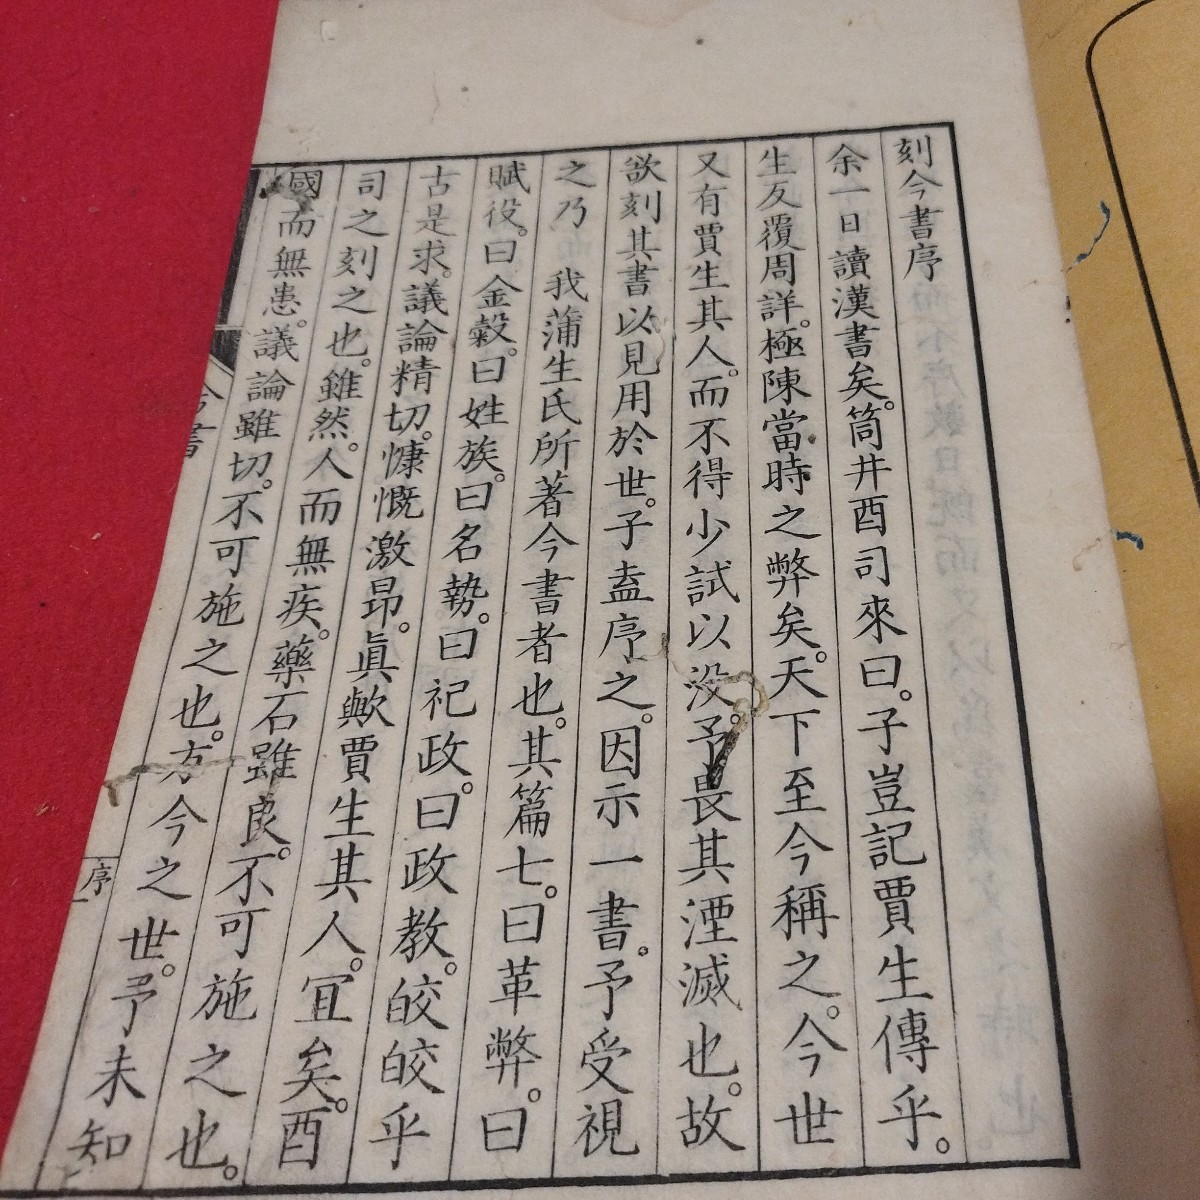 刻今書序
余一日讀漢書矣。筒井酉司來曰。子豈記賈生傳乎。
生反覆周詳。極陳當時之弊矣。天下至今稱之。今世
又有賈生其人。而不得少試以没。予畏其湮滅也。故
欲刻其書以見用於世。子盍序之。因示一書。予受視
之乃 我蒲生氏所著今書者也。其篇七。曰革弊。曰
賦役。曰金穀。曰姓族。曰名勢。曰祀政。曰政教。皎皎乎
古是求。議論精切。慷慨激昂。眞歟賈生其人。宜矣。酉
司之刻之也。雖然。人而無疾。藥石雖良。不可施之也。
國而無患。議論雖切。不可施之也。方今之世。予未知
今書
序